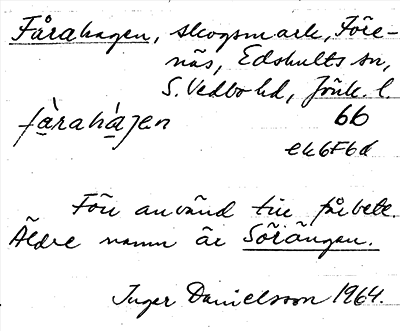 Fårahagen, skogsmark, Före-
näs, Edshults sn,
S. Vedbo hd, Jönk. l.
fàrahájen 66
ek6F6d
Förr använd till fårbete.
Äldre namn är Sörängen.
Inger Danielsson 1964.